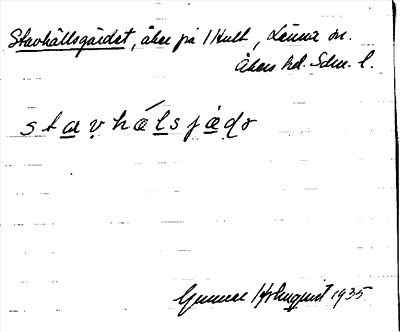 Stavhällsgärdet, åker på 1 Hult, Länna sn.
Åkers hd. Sdm. l.
stavhälsjädɂ
Gunnar Holmquist 1935